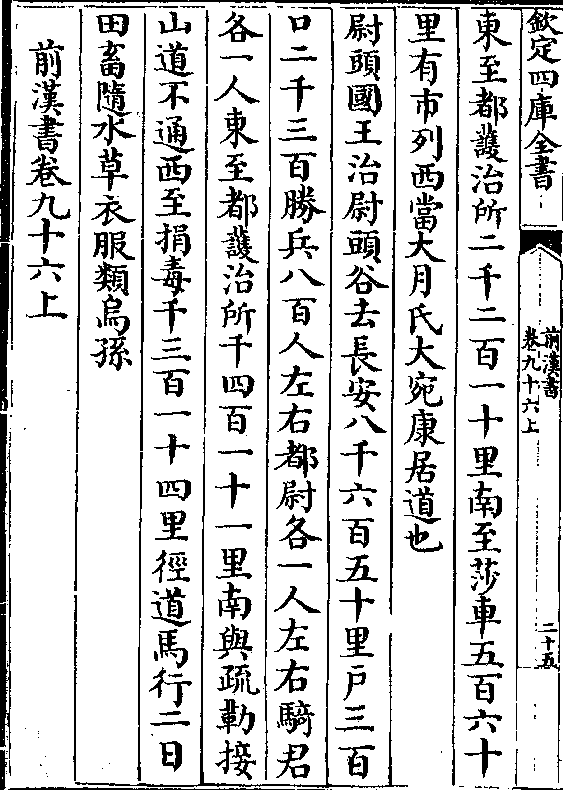 欽定四庫全書
前漢書
卷九十六上
二十五
東至都護治所二千二百一十里南至莎車五百六十
里有市列西當大月氏大宛康居道也
尉頭國王治尉頭谷去長安八千六百五十里戶三百
口二千三百勝兵八百人左右都尉各一人左右騎君
各一人東至都護治所千四百一十一里南與疏勒接
山道不通西至捐毒千三百一十四里徑道馬行二日
田畜隨水草衣服類烏孫
前漢書卷九十六上